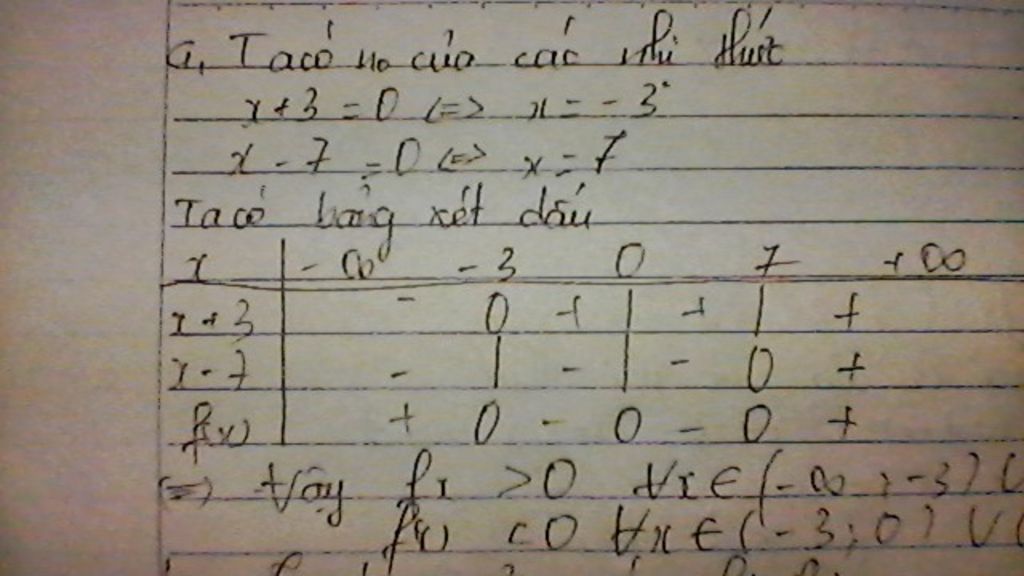 a, Ta có no của các nhị thức
x+3 = 0 <=> x = -3
x - 7 = 0 <=> x = 7
Ta có bảng xét dấu
x | -∞ -3 0 7 +∞
x+3 | - 0 + | + | +
x-7 | - | - | - 0 +
f(x) | + 0 - 0 - 0 +
=> Vậy fx > 0 ∀x ∈ (-∞ ; -3) (
f(x) < 0 ∀x ∈ (-3; 0) ∪ (